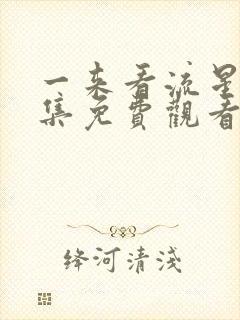 一来看流星
集免費觀看
絳河清淺